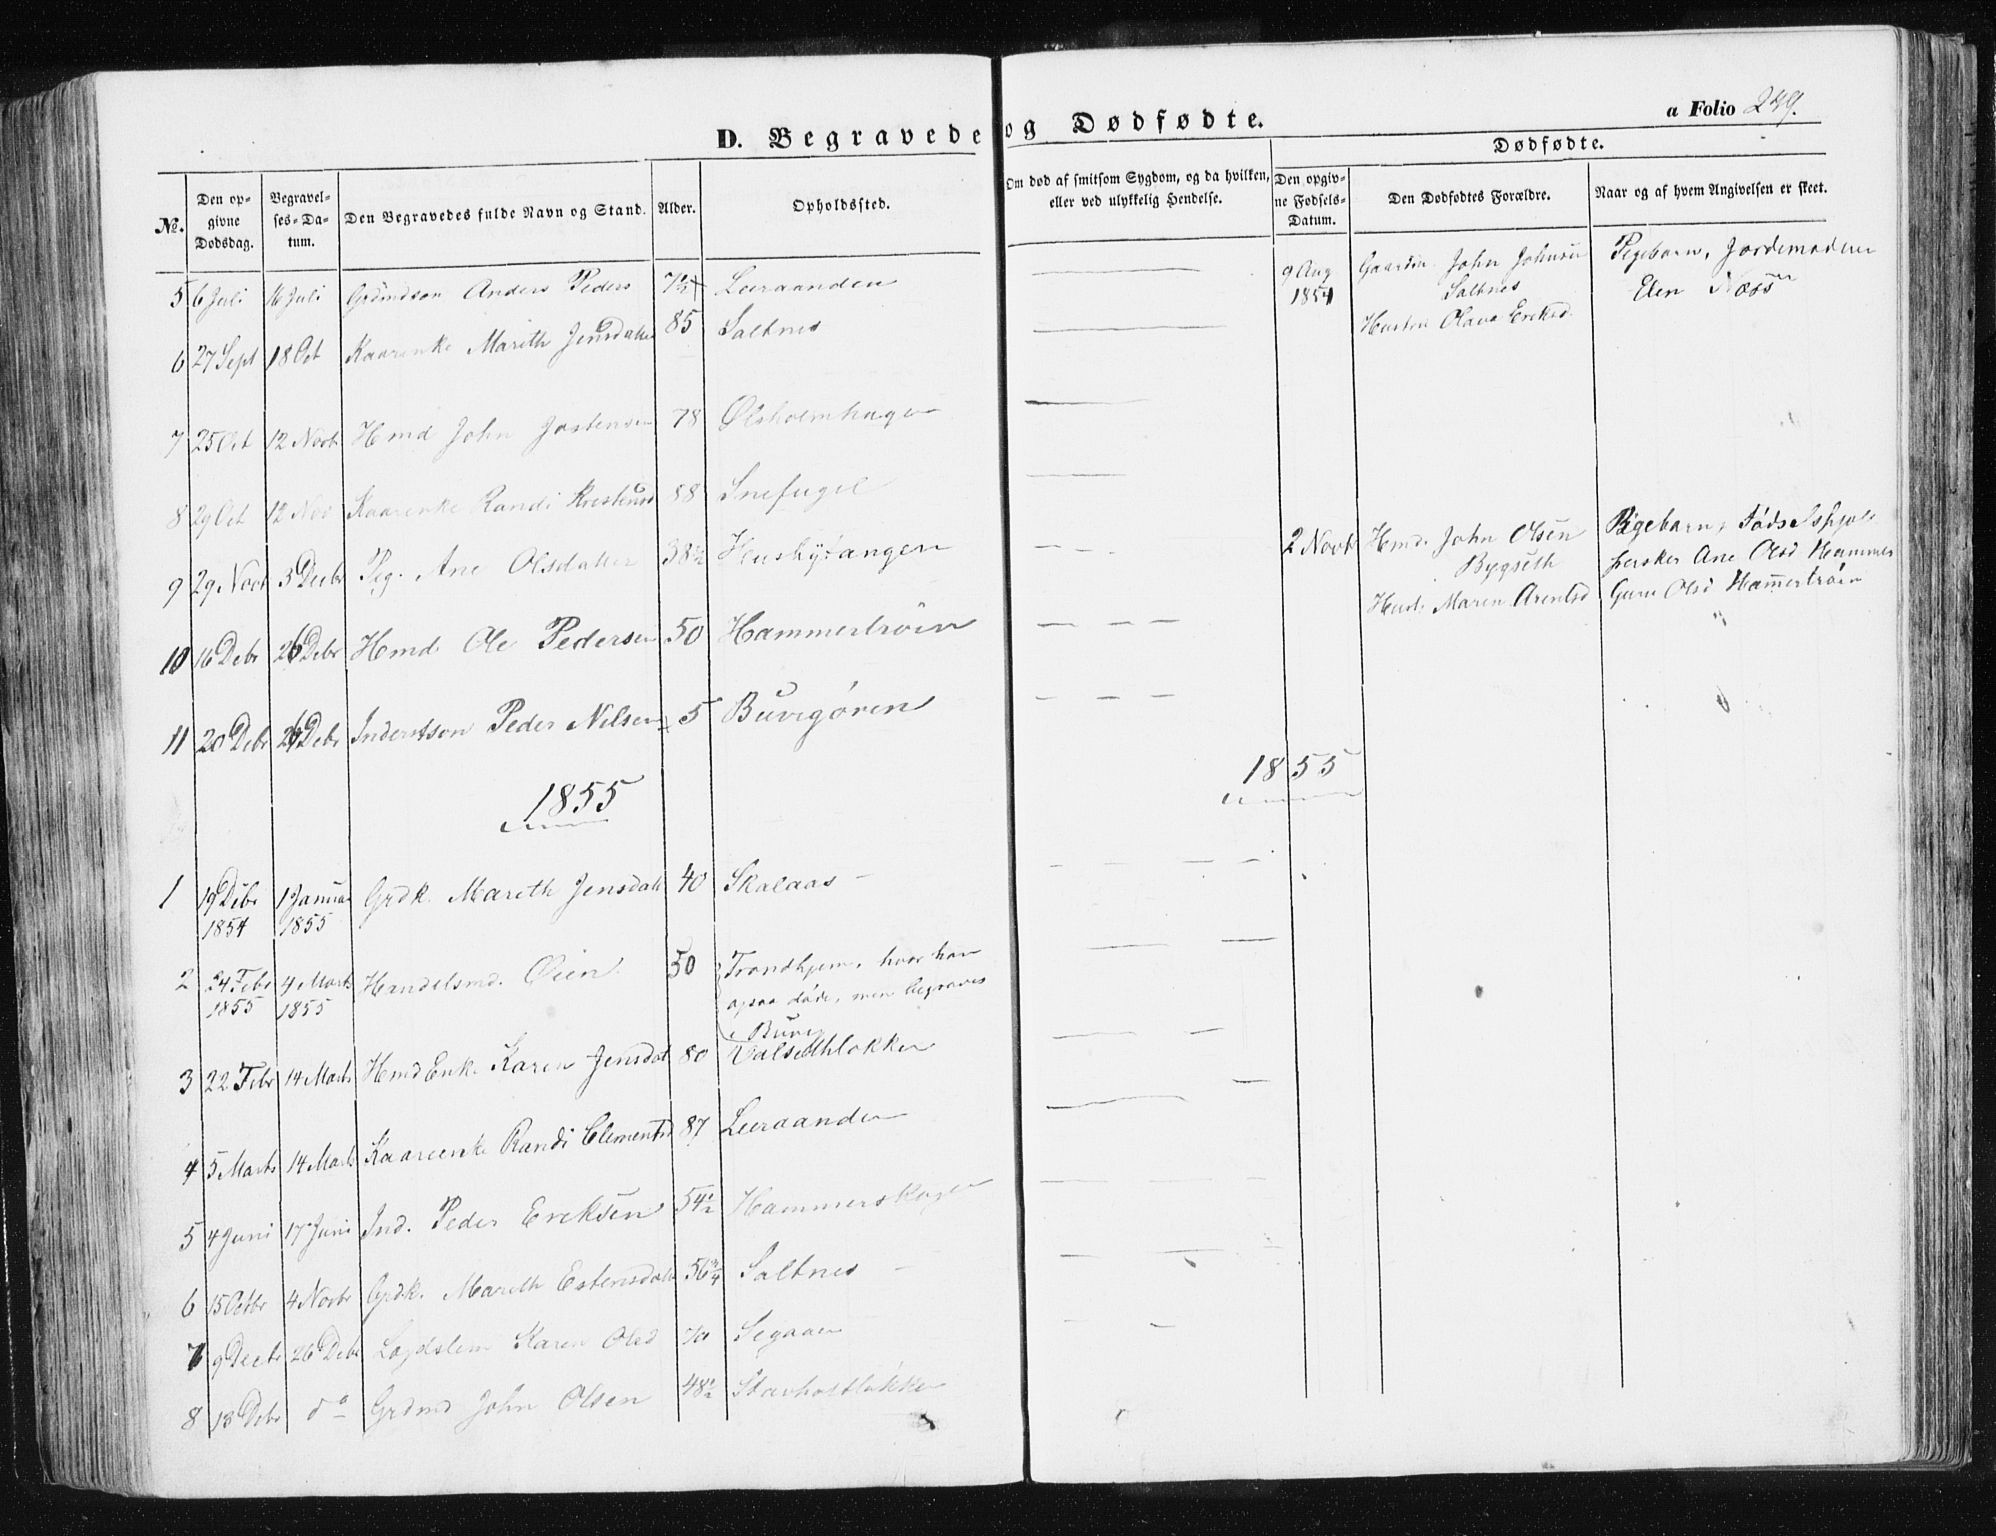 D. Begravede og Dødfødte.
a Folio 249.
Dødfødte.
No. Den opgivne Dødsdag. Begravelses-Datum. Den Begravedes fulde Navn og Stand. Alder. Opholdssted. Om død af smitsom Sygdom, og da hvilken, eller ved ulykkelig Hendelse. Den opgivne Fødsels-Datum. Den Dødfødtes Forældre. Naar og af hvem Angivelsen er skeet.
5 6 Juli 16 Juli Grdmdsøn Anders Peders Leeraanden
9 Aug 1854 Gaardm. John Johnsen Saltnes Hustru Olava Ereksd. Pigebarn, Jordemoderen Elen Næss
6 27 Sept 18 Oct Kaarenke Marith Jensdatter 85 Saltnes
7 25 Oct 12 Novb Hmd John Jostensen 78 Ølsholmhagen
8 29 Oct 12 Nov Kaarenke Randi 88 Snefugel
9 29 Novb 3 Decbr Pig. Ane Olsdatter 38½ Huskytangen
2 Novb Hmd. John Olsen Bygseth Hust. Maren Arentsd Pigebarn, Ane Olsd Hammer Guru Olsd Hammertrøen
10 16 Debr 26 Debr Hmd. Ole Pedersen 50 Hammertrøen
11 20 Debr 26 Debr Inderstsøn Peder Nilsen 5 Buvigøren
1855
1855
1 19 Debr 1854 1 Januar 1855 Grdk. Mareth Jensdatt 40 Skalaas
2 24 Febr 1855 4 Marts 1855 Handelsmd. Øien 50 Trondhjem, hvor han ogsaa døde, men begraves i Buvig
3 22 Febr 14 Marts Hmd Enk. Karen Jensdat 80 Valsethløkken
4 5 Marts 14 Marts Kaareenke Randi Clementsd 87 Leeraanden
5 4 Juni 17 Juni Ind. Peder Ereksen 54½ Hammerskogen
6 15 Octbr 4 Novbr Grdk. Mareth Estensdatt 56¾ Saltnes
7 9 Decbr 26 Debr Lægdslem Karen Olsd 70 Segaaen
8 13 Debr do Grdmd John Olsen 48½ Stavholtløkken